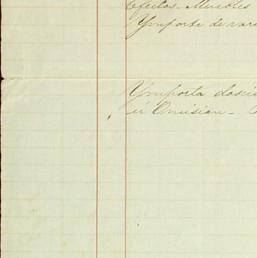 Efectos. Muebles
Ymporte de vari
Ymporta
ú Omision -